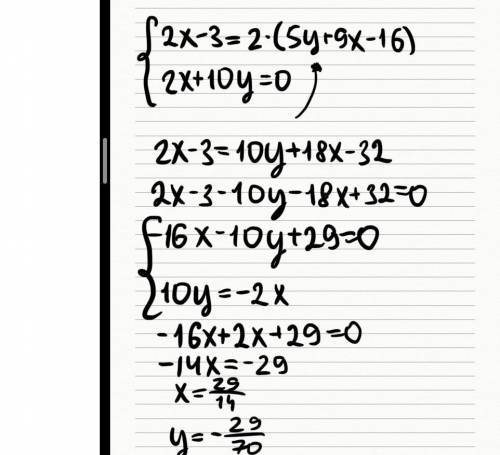 2x-3=2·(5y+9x-16)
2x+10y=0
2x-3=10y+18x-32
2x-3-10y-18x+32=0
-16x-10y+29=0
10y=-2x
-16x+2x+29=0
-14x=-29
x=29/14
y=-29/70